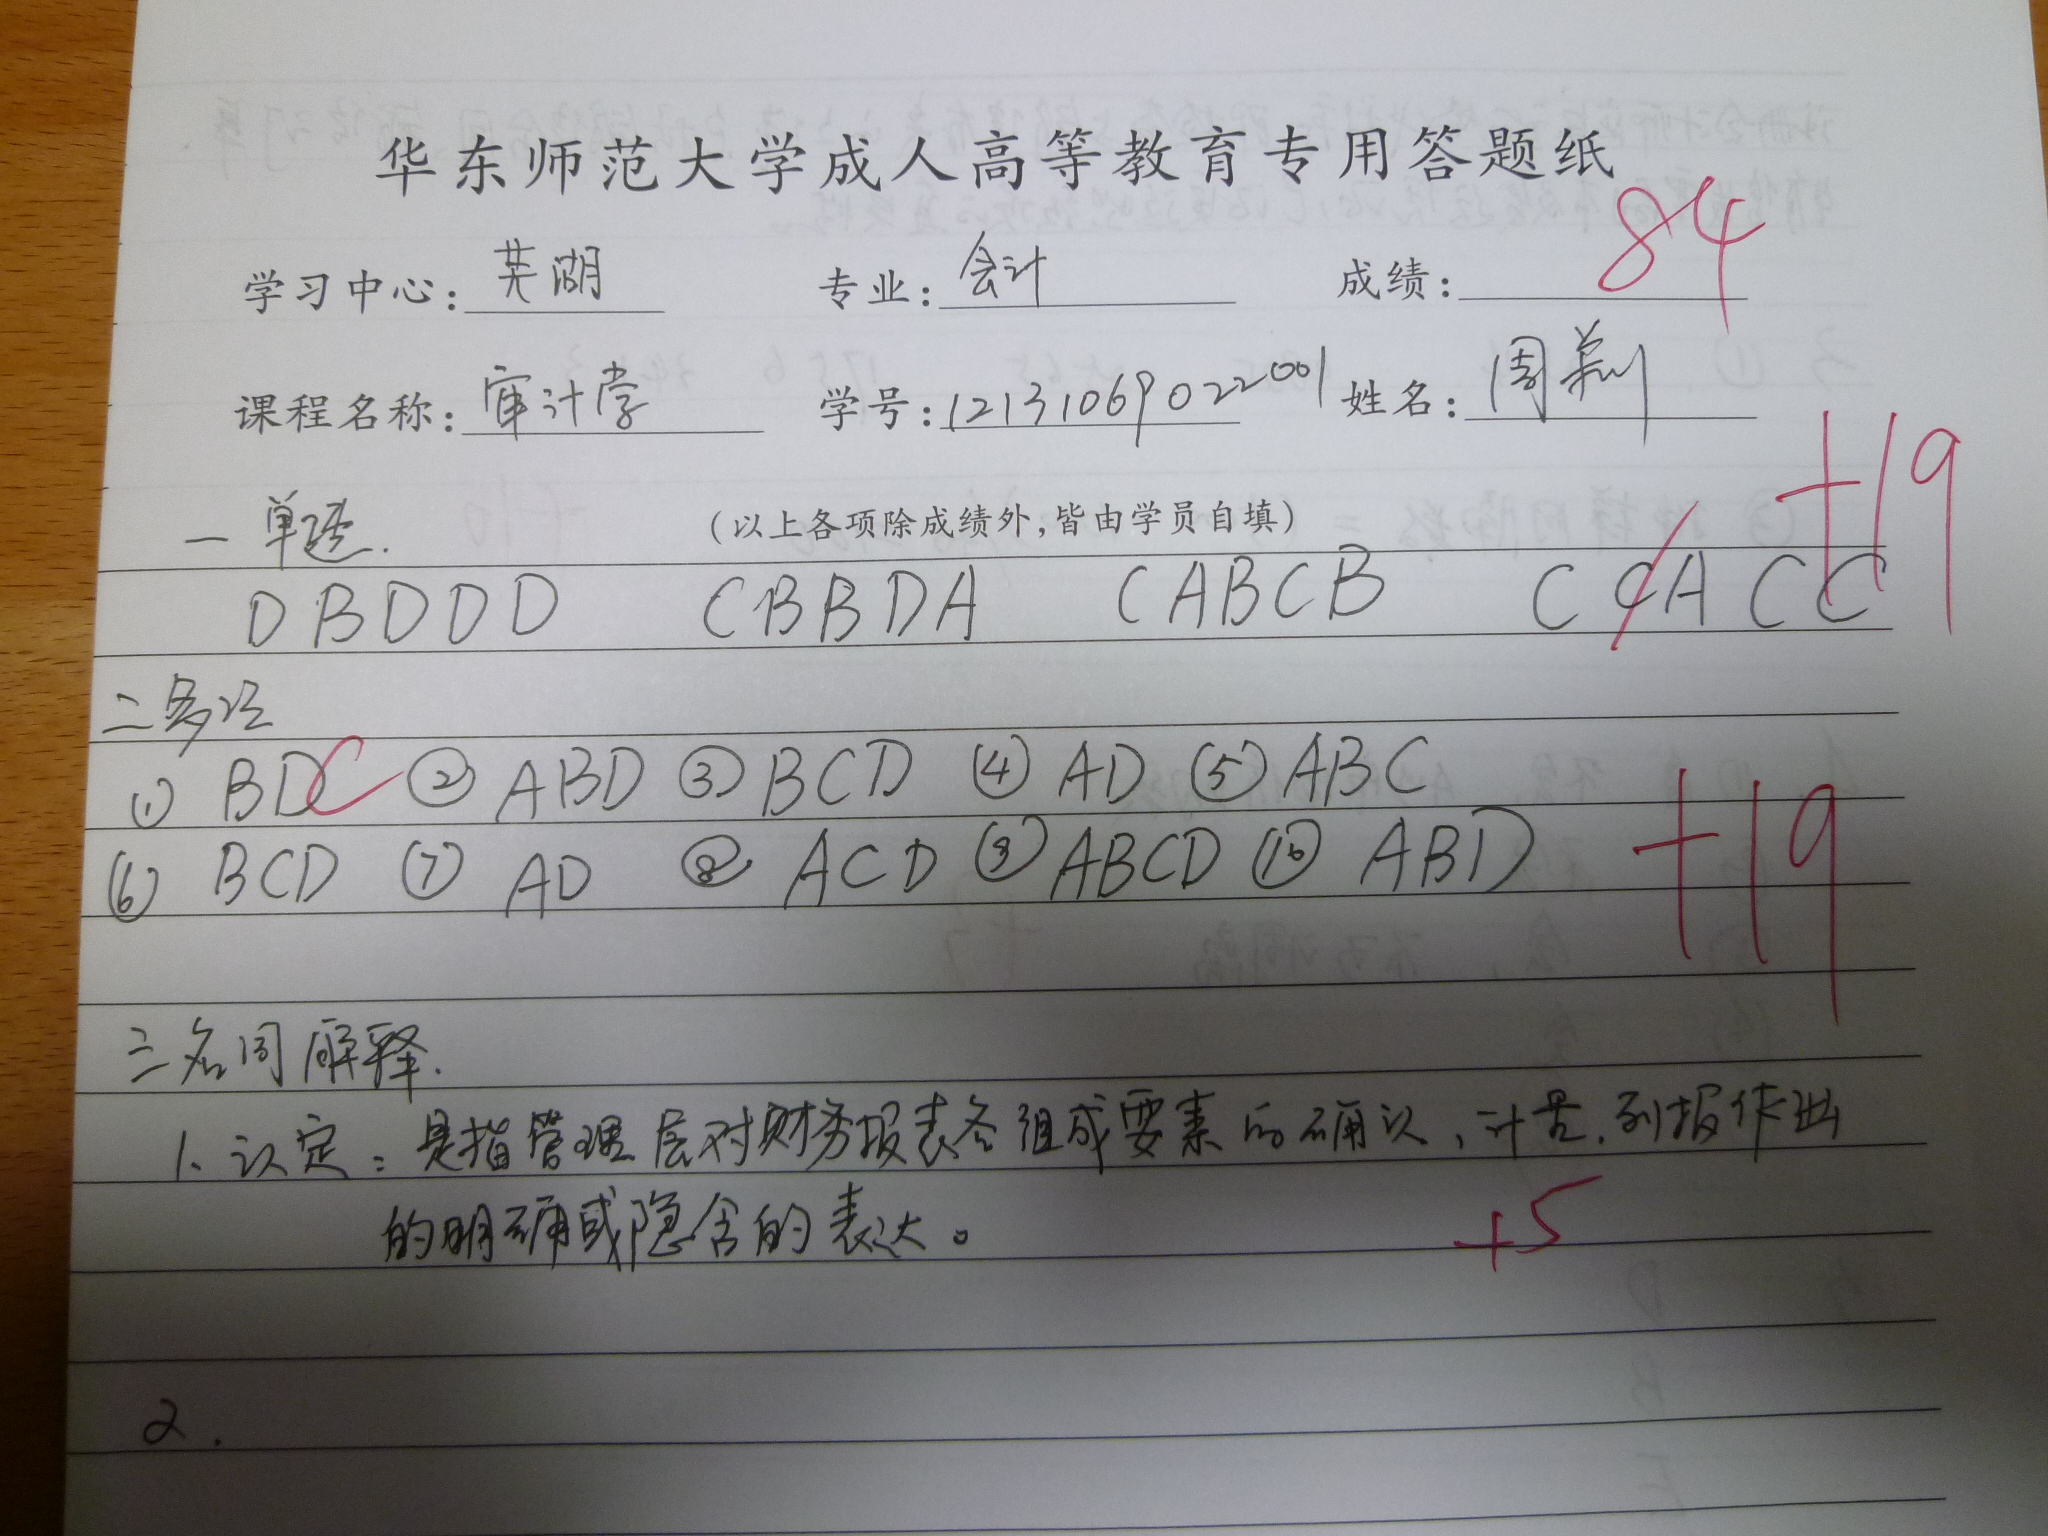 华东师范大学成人高等教育专用答题纸
学习中心: 芜湖 专业: 会计 成绩: 84
课程名称: 审计学 学号: 12131069022001 姓名: 周
一 单选. (以上各项除成绩外,皆由学员自填) +19
D B D D D C B B D A C A B C B C C A C C
二 多选
① BDC ② ABD ③ BCD ④ AD ⑤ ABC
⑥ BCD ⑦ AD ⑧ ACD ⑨ ABCD ⑩ ABD +19
三 名词解释.
1、认定: 是指管理层对财务报表各组成要素的确认、计量、列报作出
的明确或隐含的表达。 +5
2.